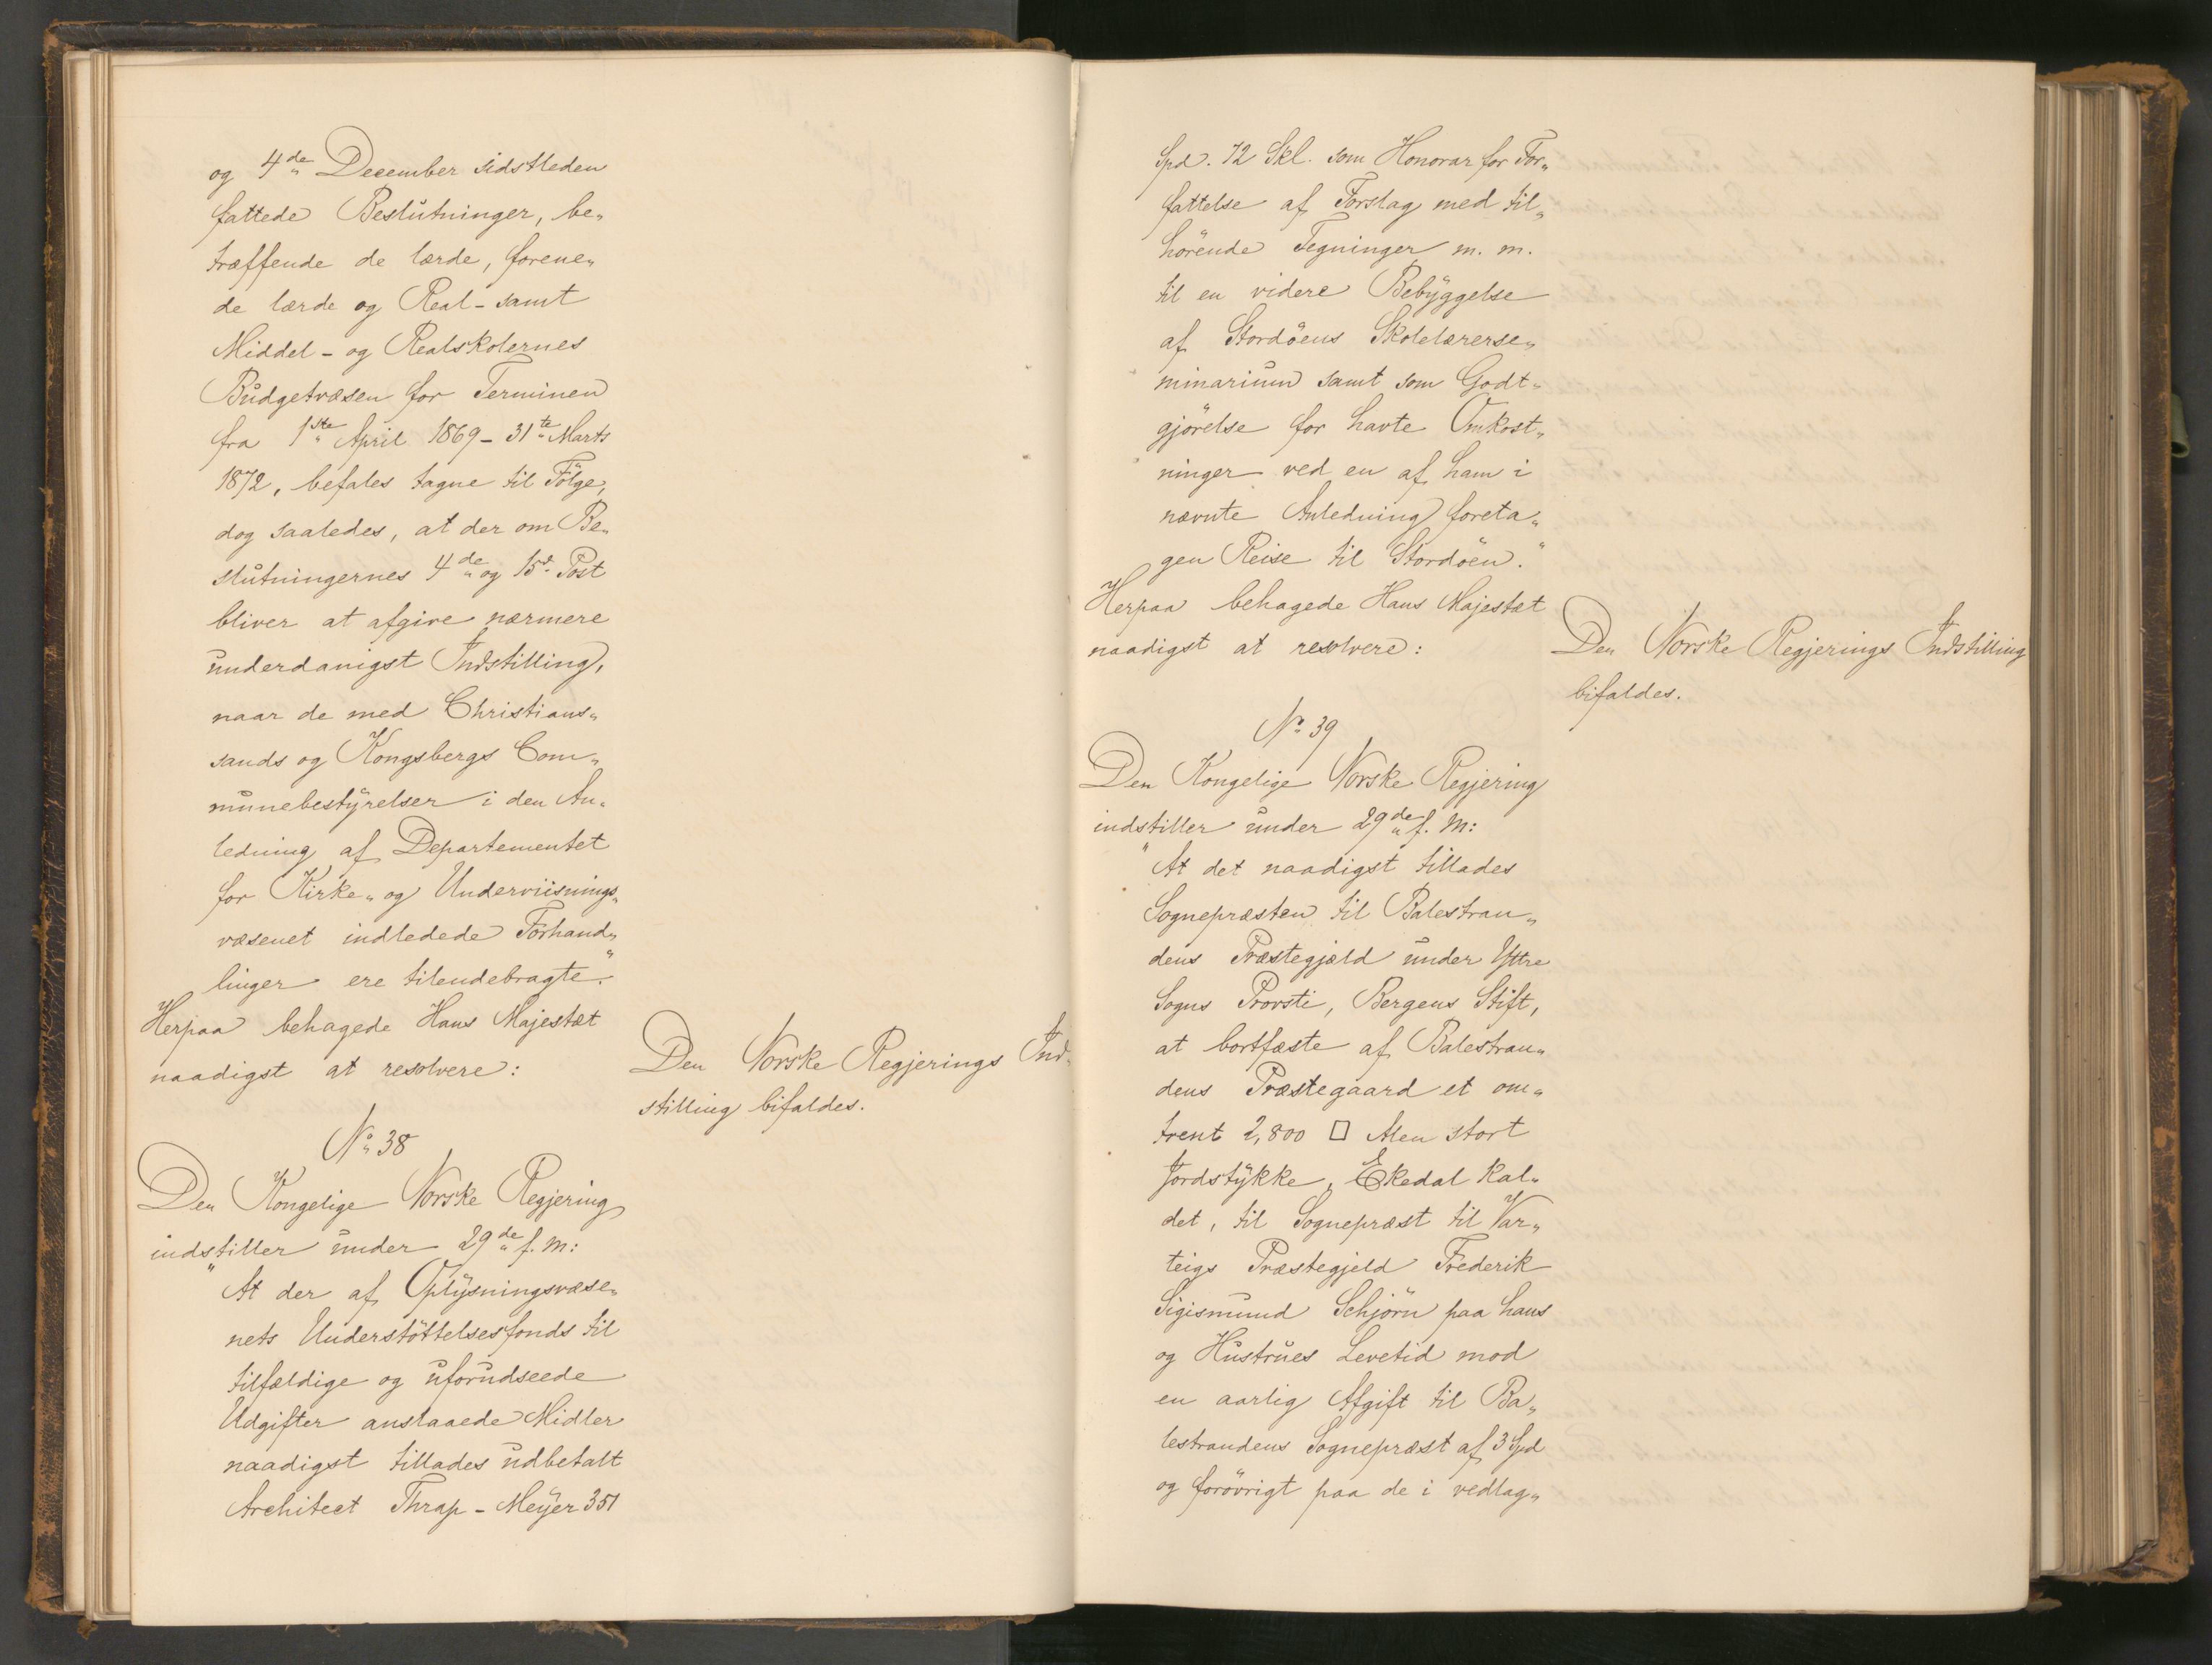 og 4de December sidstleden
fattede Beslutninger, be„
træffende de lærde, forene„
de lærde og Real- samt
Middel- og Realskolernes
Budgetvæsen for Terminen
fra 1ste April 1869 - 31te Marts
1872, befales tagne til Følge,
dog saaledes, at der om Be„
slutningernes 4de og 15d. Post
bliver at afgive nærmere
underdanigst Indstilling,
naar de med Christians„
sands og Kongsbergs Com„
munebestyrelser i den An„
ledning af Departementet
for Kirke- og Underviisnings„
væsenet indledede Forhand„
linger ere tilendebragte."
Herpaa behagede Hans Majestæt
naadigst at resolvere:
Den Norske Regjerings Ind„
stilling bifaldes.
No 38
Den Kongelige Norske Regjering
indstiller under 29de f. M:
"At der af Oplysningsvæse„
nets Understöttelsesfonds til
tilfældige og uforudseede
Udgifter anslaaede Midler
naadigst tillades udbetalt
Architect Thrap-Meyer 351
Spd. 72 Skl. som Honorar for For„
fattelse af Forslag med til„
hörende Tegninger m. m.
til en videre Bebyggelse
af Stordöens Skolelærerse„
minarium samt som Godt„
gjörelse for havte Omkost„
ninger ved en af ham i
nævnte Anledning foreta„
gen Reise til Stordöen."
Herpaa behagede Hans Majestæt
naadigst at resolvere:
Den Norske Regjerings Indstilling
bifaldes.
No 39
Den Kongelige Norske Regjering
indstiller under 29de f. M:
"At det naadigst tillades
Sognepræsten til Balestran„
dens Præstegjæld under Yttre
Sogns Provsti, Bergens Stift,
at bortfæste af Balestran„
dens Præstegaard et om„
trent 2,800 □ Alen stort
Jordstykke, Ekedal kal„
det, til Sognepræst til Var„
teigs Præstegjeld Frederik
Sigismund Schjörn paa hans
og Hustrues Levetid mod
en aarlig Afgift til Ba„
lestrandens Sognepræst af 3 Spd
og forövrigt paa de i vedlag„